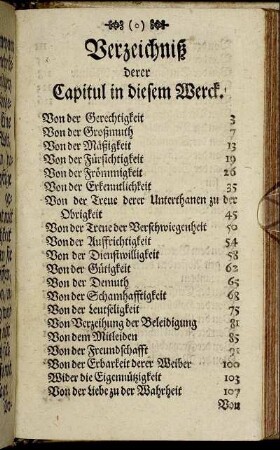 (o)
Verzeichniß
derer
Capitul in diesem Werck.
Von der Gerechtigkeit 3
Von der Großmuth 7
Von der Mäßigkeit 13
Von der Fürsichtigkeit 19
Von der Frömmigkeit 26
Von der Erkenntlichkeit 35
Von der Treue derer Unterthanen zu der
Obrigkeit 45
Von der Treue der Verschwiegenheit 50
Von der Auffrichtigkeit 54
Von der Dienstwilligkeit 58
Von der Gütigkeit 62
Von der Demuth 65
Von der Schamhafftigkeit 68
Von der Leutseligkeit 75
Von Verzeihung der Beleidigung 81
Von dem Mitleiden 85
Von der Freundschafft
Von der Erbarkeit derer Weiber 100
Wider die Eigennützigkeit 103
Von der Liebe zu der Wahrheit 107
Von